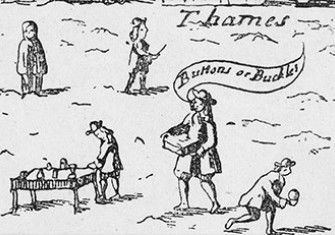 Thames
Buttons or Buckls